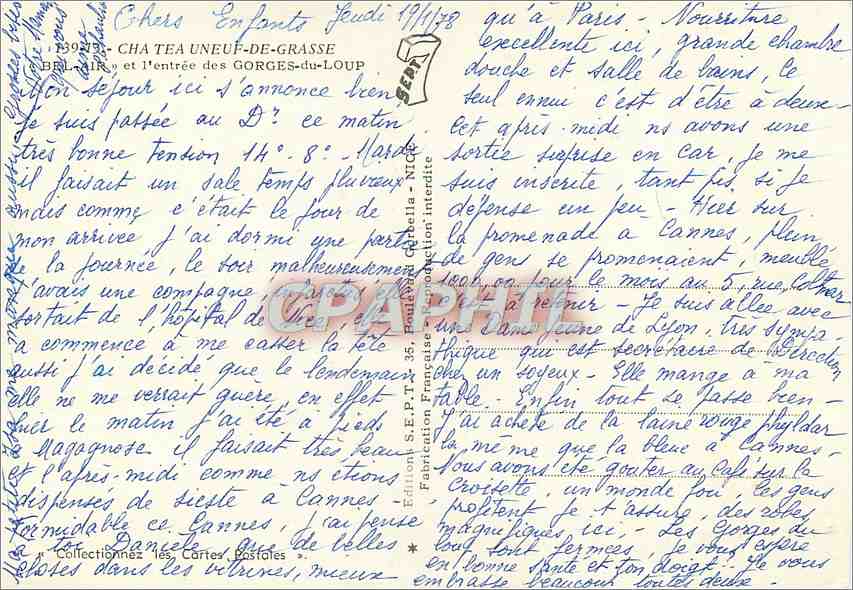 Chers Enfants Jeudi 19/1/78
139-13 - CHATEAUNEUF-DE-GRASSE
« BEL-AIR » et l'entrée des GORGES-du-LOUP
Mon séjour ici s'annonce bien
je suis passée au Dr ce matin
très bonne tension 14°-8°- Mardi
il faisait un sale temps pluvieux
mais comme c'était le jour de
mon arrivée j'ai dormi une partie
de la journée, le soir malheureusement
j'avais une compagne, elle
sortait de l'hôpital de Nice, elle
a commencé à me casser la tête
aussi j'ai décidé que le lendemain
elle ne me verrait guère, en effet
hier le matin j'ai été à pieds
à Magagnosc il faisait très beau
et l'après-midi comme ns étions
dispensés de sieste à Cannes
formidable ce Cannes, j'ai pensé
à toi Danièle, que de belles
« Collectionnez les Cartes Postales »
choses dans les vitrines, mieux
qu'à Paris - Nourriture
excellente ici, grande chambre
douche et salle de bains, le
seul ennui c'est d'être à deux-
Cet après-midi ns avons une
sortie surprise en car, je me
suis inscrite, tant pis si je
dépense un peu - Hier sur
la promenade à Cannes, plein
de gens se promenaient, meublé
1000,00 pour le mois au 5, rue Colmar
c'est à retenir - Je suis allée avec
une Dame jeune de Lyon, très sympa-
thique qui est secrétaire de Direction
chez un soyeux - Elle mange à ma
table - Enfin tout se passe bien -
J'ai acheté de la laine rouge phyldar
la même que la bleue à Cannes -
Nous avons été goûter au Café sur la
Croisette, un monde fou, les gens
profitent je t'assure, des robes
magnifiques ici, - Les Gorges du
Loup sont fermées, je vous espère
en bonne santé et ton doigt - Je vous
embrasse beaucoup toutes deux -
Ma petite Isa me manque aussi, Grosses bises
Votre Mamy
SEPT
Editions S.E.P.T. - 35, Boulevard Gorbella - NICE
Fabrication Française - Reproduction interdite
CPAPHIL